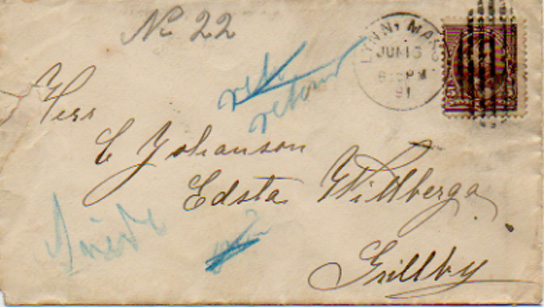 No 22
LYNN, MASS
JUN 15
6 PM
91
retour
Herr
C Johanson
Edsta Wittberga
Grillby